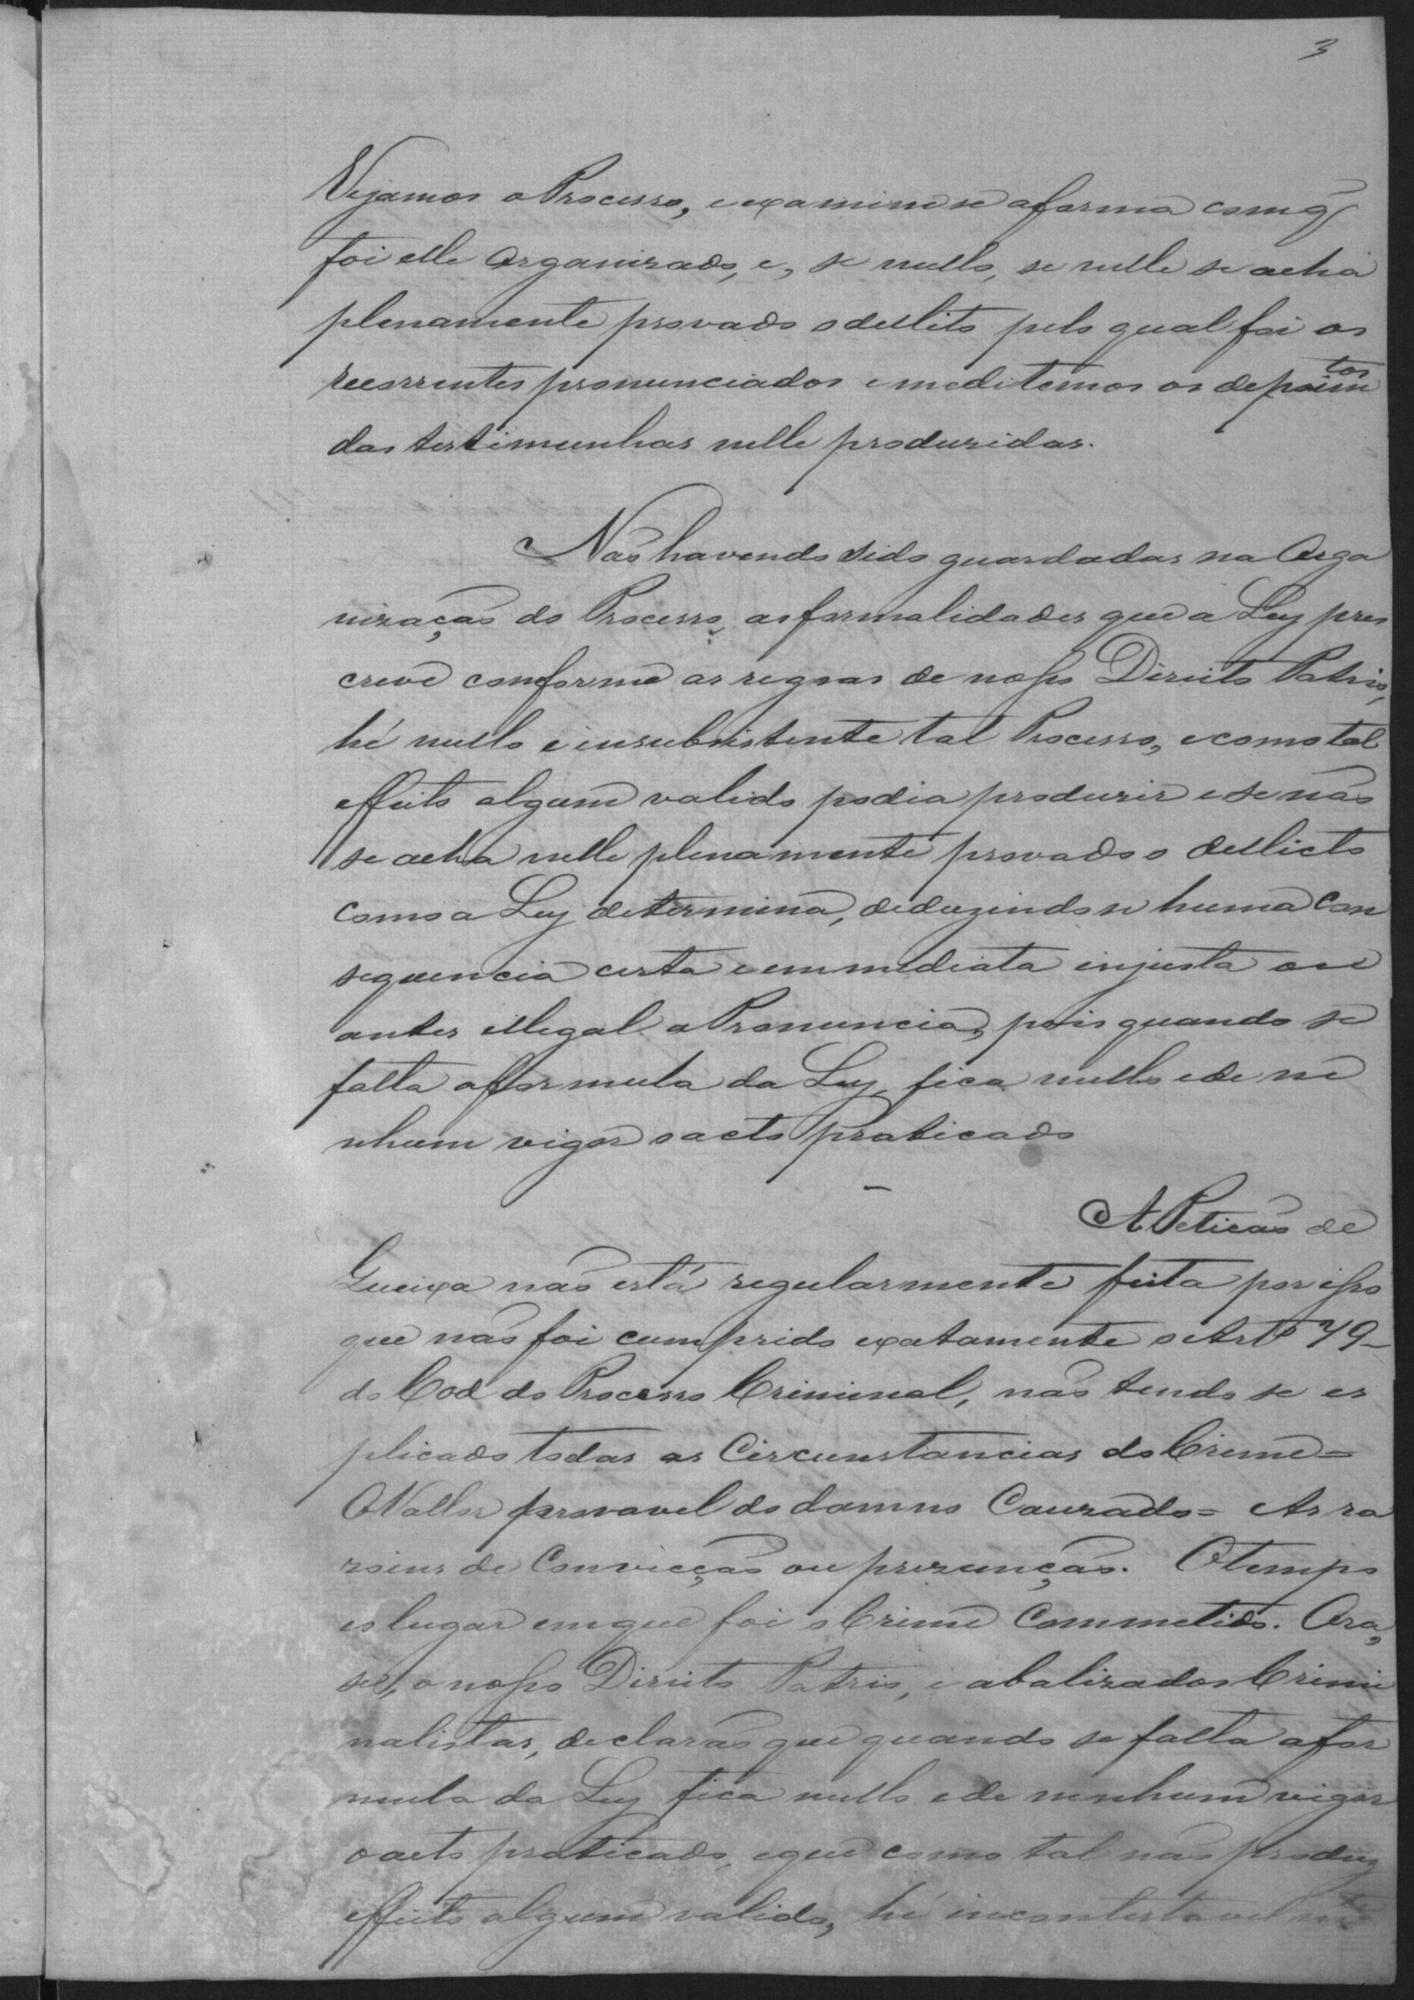 3
Vejamos o Processo, e examine se a forma com q̃
foi elle Organizado, e, se nullo, se nelle se acha
plenamente provado o dellito pelo qual foi os
recorrentes pronunciados e meditemos os depoim
tos
das testimunhas nelle produzidas.
Não havendo sido guardadas na Orga
nização do Processo as formalidades que a Ley pres
creve conforme as regras de nosso Direito Patrio,
hé nullo e insubsistente tal Processo, e como tal
effeito algum valido podia produzir e se não
se acha nelle plenamente provado o dellicto
como a Ley determina, deduzindo se huma Con
sequencia certa e emmediata injusta ou
antes illegal a Pronuncia, pois quando se
falta a formula da Ley, fica nullo e de ne
nhum vigor o acto praticado
A Petição de
Queixa não está regularmente feita por isso
que não foi cumprido exatamente o Artº 79
do Cod do Processo Criminal, não tendo se es
plicado todas as Circunstancias do Crime =
O Vallor provavel do damno Cauzado = As ra
zoens de Convicção ou prezunção. O tempo
e o lugar em que foi o Crime Commetido. Ora,
se, o nosso Direito Patrio, e abalizados Crimi
nalistas, declarão que quando se falta a for
mula da Ley fica nullo e de nenhum vigor
o acto praticado, e que como tal não produz
effeito algum valido, hé incontestavelm.te